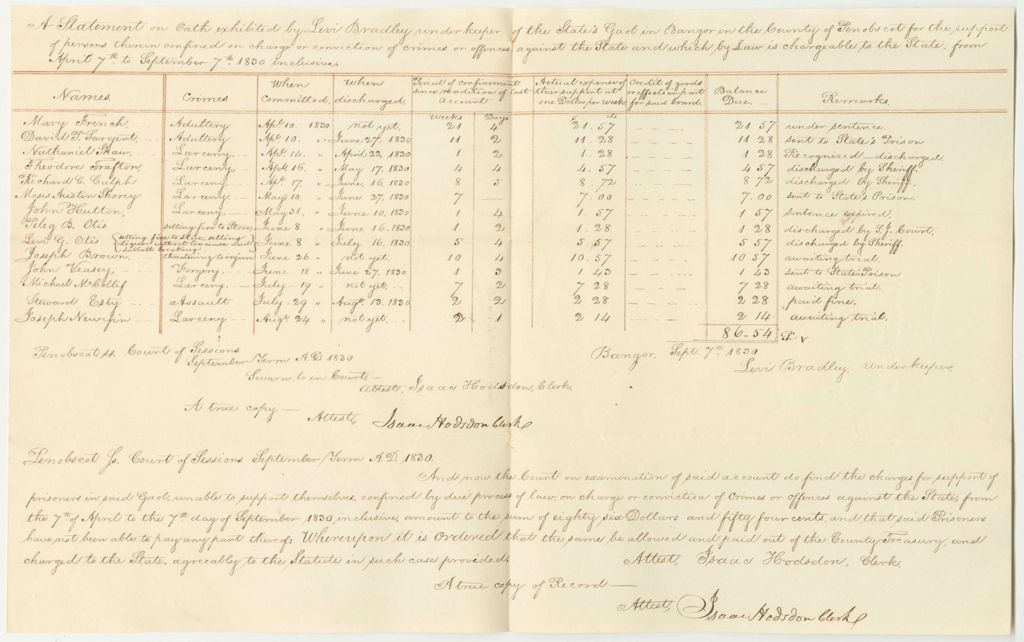 A Statement on Oath exhibited by Levi Bradley under keeper of the State's Gaol in Bangor in the County of Penobscot for the support
of persons therein confined on charge or conviction of crimes or offences against the State and which by Law is chargeable to the State, from
April 7th to September 7th 1830 inclusive.
Names. Crimes When Committed. When discharged. Period of confinement since rendition of last account Actual expense of their support at one Dollar per week Credit of goods or effects in part for said board. Balance Due. Remarks.
Weeks Days
Mary French Adultery Apl. 10. 1830 not yet. 21 4 21.57 21 57 under sentence.
David T. Sargent Adultery Apl. 10. " June 27. 1830 11 2 11.28 11 28 sent to State's Prison
Nathaniel Shaw Larceny Apl. 14. " April 22, 1830 1 2 1.28 1 28 Recognized discharged
Theodore Trafton Larceny Apl. 16. " May 17. 1830 4 4 4.57 4 57 discharged by Sheriff.
Richard C. Culph Larceny Apl. 17 " June 16. 1830 8 5 8.72 8 72 discharged by Sheriff.
Moses Austin Shorey Larceny May 10, " June 27. 1830 7 7.00 7.00 sent to State's Prison.
John Hutton Larceny May 31. " June 10. 1830 1 4 1.57 1 57 sentence expired.
Peleg B. Otis setting fire to Store June 8 " June 16. 1830 1 2 1.28 1 28 discharged by S.J. Court.
Levi G. Otis setting fire to Store, selling Liquor without license and June 8 " July 16. 1830 5 4 5 57 5 57 discharged by Sheriff
Joseph Brown threatening to injure June 26 " not yet. 10 4 10.57 10 57 awaiting trial.
John Veasey Forgery June 18 " June 27. 1830 1 3 1 43 1 43 sent to State's Prison
Michael McCollif Larceny July 19 " not yet. 7 2 7 28 7 28 awaiting trial.
Steward Esty Assault July 29 " Augt. 13. 1830 2 2 2 28 2 28 paid fine.
Joseph Newgin Larceny Augt. 24 " not yet. 2 1 2 14 2 14 awaiting trial.
86.54
Penobscot ss. Court of Sessions
September Term A.D. 1830
Bangor, Sept. 7th 1830
Levi Bradley, Under keeper.
Sworn to in Court
Attest, Isaac Hodsdon, Clerk.
A true copy
Attest, Isaac Hodsdon Clerk
Penobscot Ss. Court of Sessions September Term A.D. 1830.
And now the Court on examination of said account do find the charges for support of
prisoners in said Gaol, unable to support themselves, confined by due process of law, on charge or conviction of Crimes or offences against the State, from
the 7th of April to the 7th day of September 1830, inclusive, amount to the sum of eighty six Dollars and fifty four cents, and that said Prisoners
have not been able to pay any part thereof: Whereupon it is Ordered that the same be allowed and paid out of the County Treasury, and
charged to the State, agreeably to the Statute in such case provided.
Attest, Isaac Hodsdon, Clerk.
A true copy of Record
Attest, Isaac Hodsdon Clerk